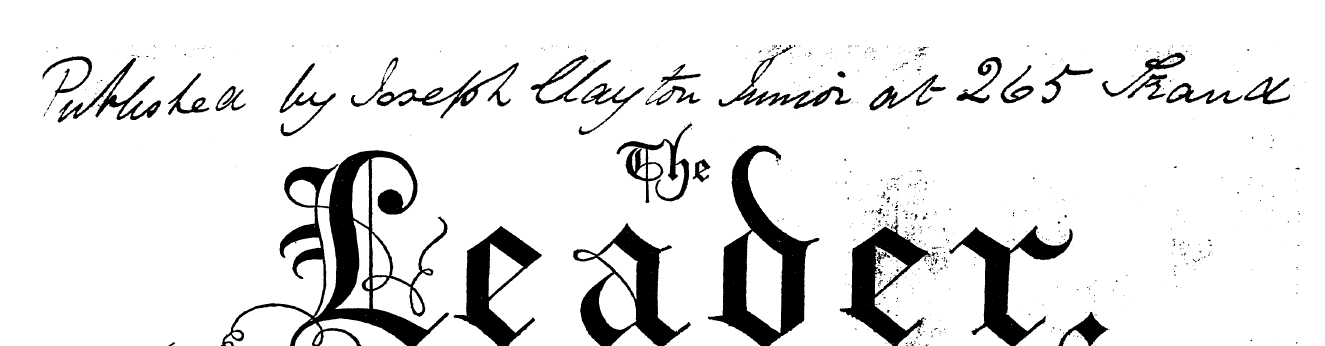 Published by Joseph Clayton Junior at 265 Strand
The
Leader.